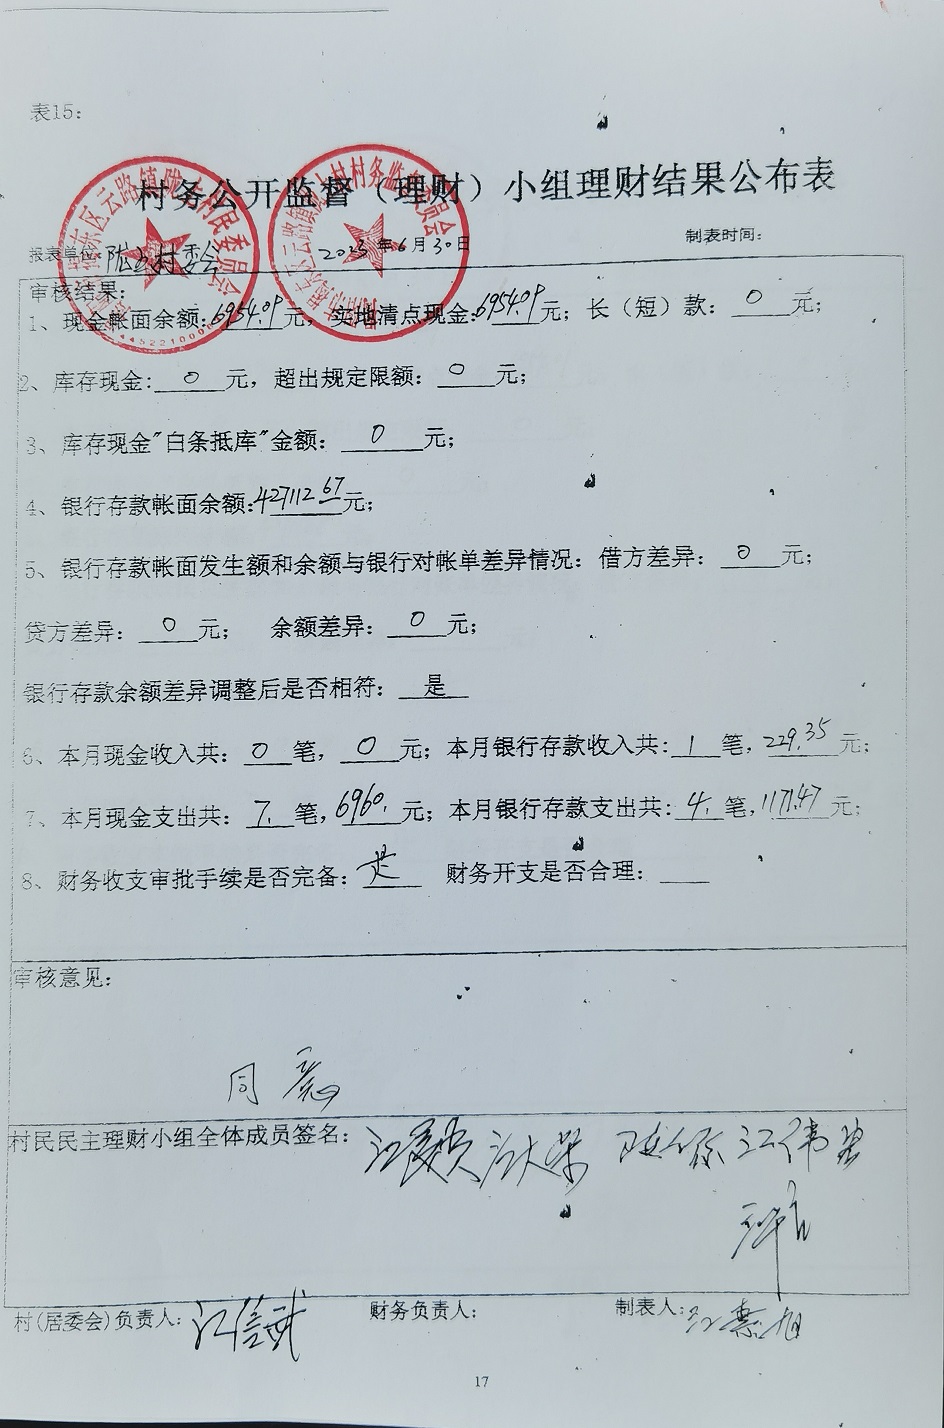 表15:
村务公开监督（理财）小组理财结果公布表
报表单位: 陇上村委会 2023年6月30日 制表时间:
审核结果:
1、现金帐面余额:6954.09元, 实地清点现金:6954.09元; 长（短）款: 0 元;
2、库存现金: 0 元, 超出规定限额: 0 元;
3、库存现金"白条抵库"金额: 0 元;
4、银行存款帐面余额:427112.67元;
5、银行存款帐面发生额和余额与银行对帐单差异情况: 借方差异: 0 元;
贷方差异: 0 元; 余额差异: 0 元;
银行存款余额差异调整后是否相符: 是
6、本月现金收入共: 0 笔, 0 元; 本月银行存款收入共: 1 笔, 229.35 元;
7、本月现金支出共: 7. 笔, 6960. 元; 本月银行存款支出共: 4. 笔, 1171.47 元;
8、财务收支审批手续是否完备: 是 财务开支是否合理:
审核意见:
同意
村民民主理财小组全体成员签名: 江伟
村(居委会)负责人: 江信武 财务负责人: 制表人:
17